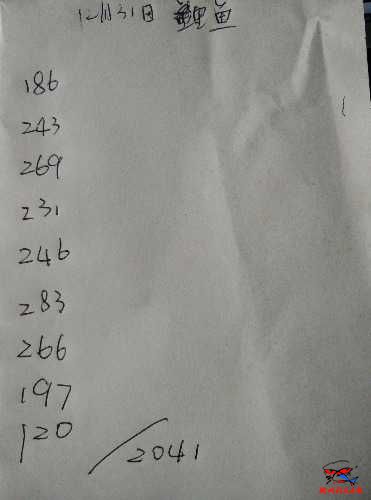 12月31日 鲤鱼
186
243
269
231
246
283
266
197
120
2041